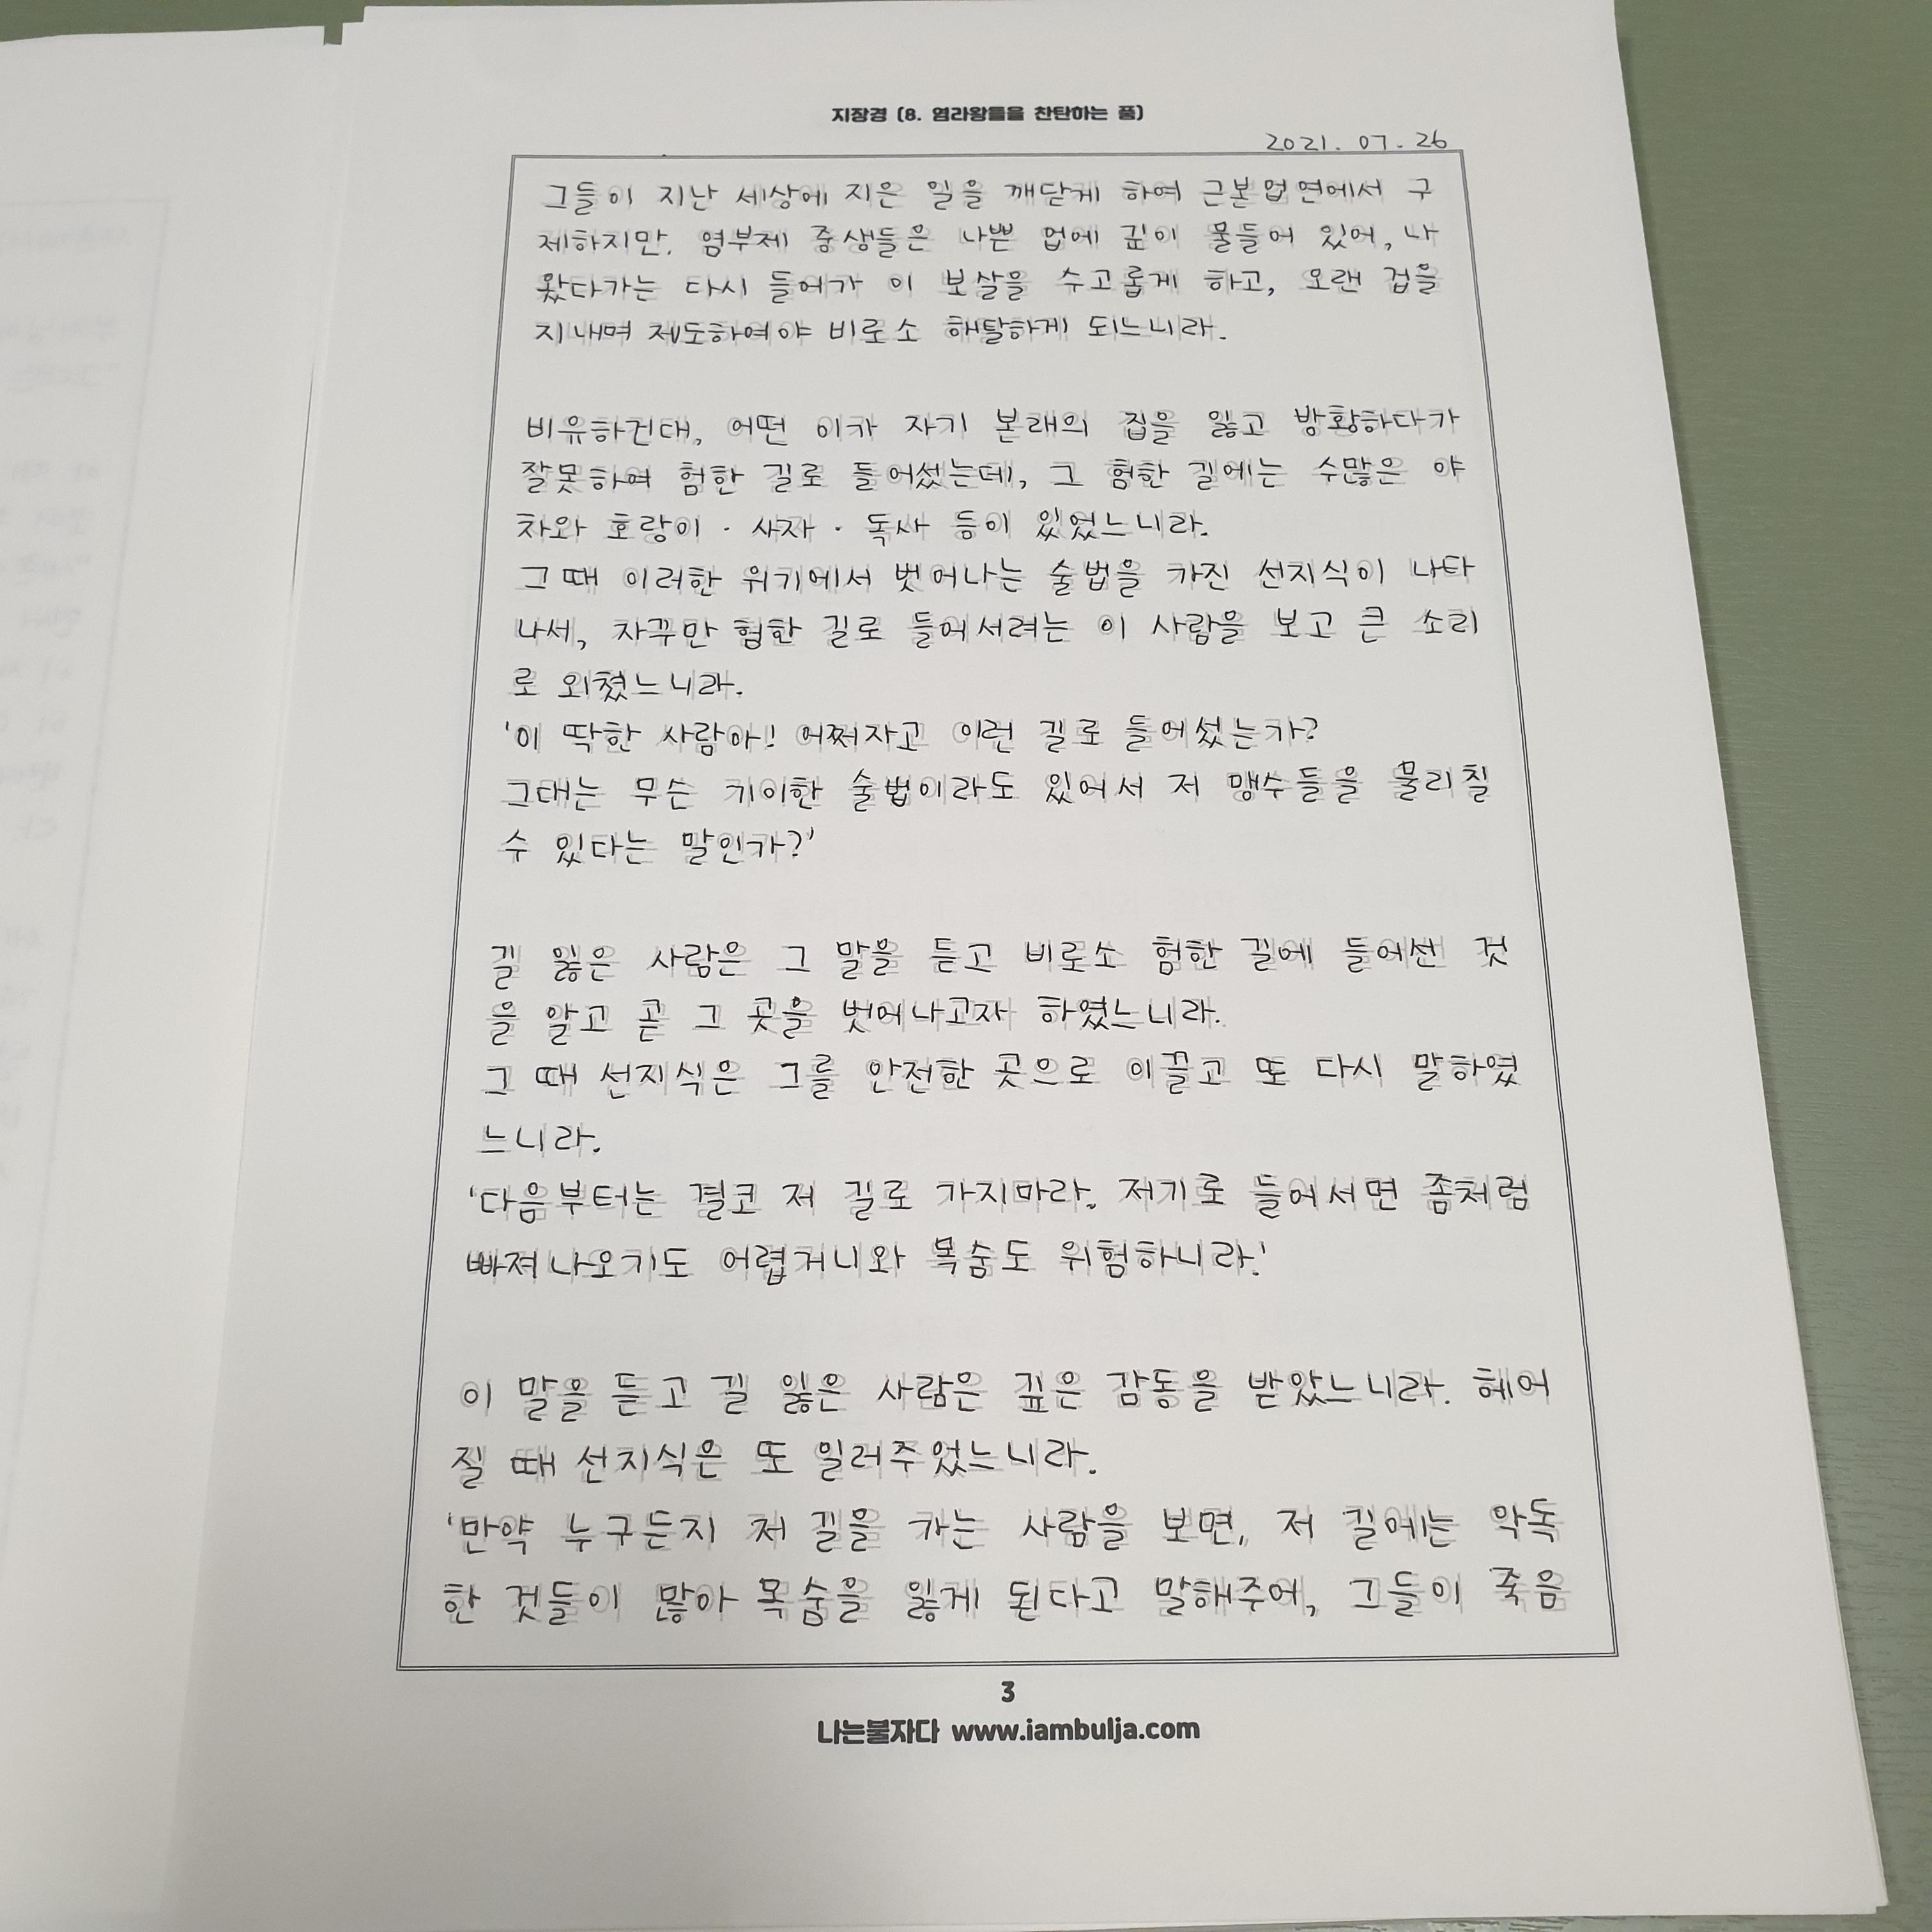 지장경 (8. 염라왕들을 찬탄하는 품)
2021. 07. 26
그들이 지난 세상에 지은 일을 깨닫게 하여 근본업연에서 구
제하지만, 염부제 중생들은 나쁜 업에 깊이 물들어 있어, 나
왔다가는 다시 들어가 이 보살을 수고롭게 하고, 오랜 겁을
지내며 제도하여야 비로소 해탈하게 되느니라.
비유하건대, 어떤 이가 자기 본래의 집을 잃고 방황하다가
잘못하여 험한 길로 들어섰는데, 그 험한 길에는 수많은 야
차와 호랑이 · 사자 · 독사 등이 있었느니라.
그 때 이러한 위기에서 벗어나는 술법을 가진 선지식이 나타
나서, 자꾸만 험한 길로 들어서려는 이 사람을 보고 큰 소리
로 외쳤느니라.
'이 딱한 사람아! 어쩌자고 이런 길로 들어섰는가?
그대는 무슨 기이한 술법이라도 있어서 저 맹수들을 물리칠
수 있다는 말인가?'
길 잃은 사람은 그 말을 듣고 비로소 험한 길에 들어선 것
을 알고 곧 그 곳을 벗어나고자 하였느니라.
그 때 선지식은 그를 안전한 곳으로 이끌고 또 다시 말하였
느니라.
'다음부터는 결코 저 길로 가지마라. 저기로 들어서면 좀처럼
빠져나오기도 어렵거니와 목숨도 위험하니라.'
이 말을 듣고 길 잃은 사람은 깊은 감동을 받았느니라. 헤어
질 때 선지식은 또 일러주었느니라.
'만약 누구든지 저 길을 가는 사람을 보면, 저 길에는 악독
한 것들이 많아 목숨을 잃게 된다고 말해주어, 그들이 죽음
3
나는불자다 www.iambulja.com